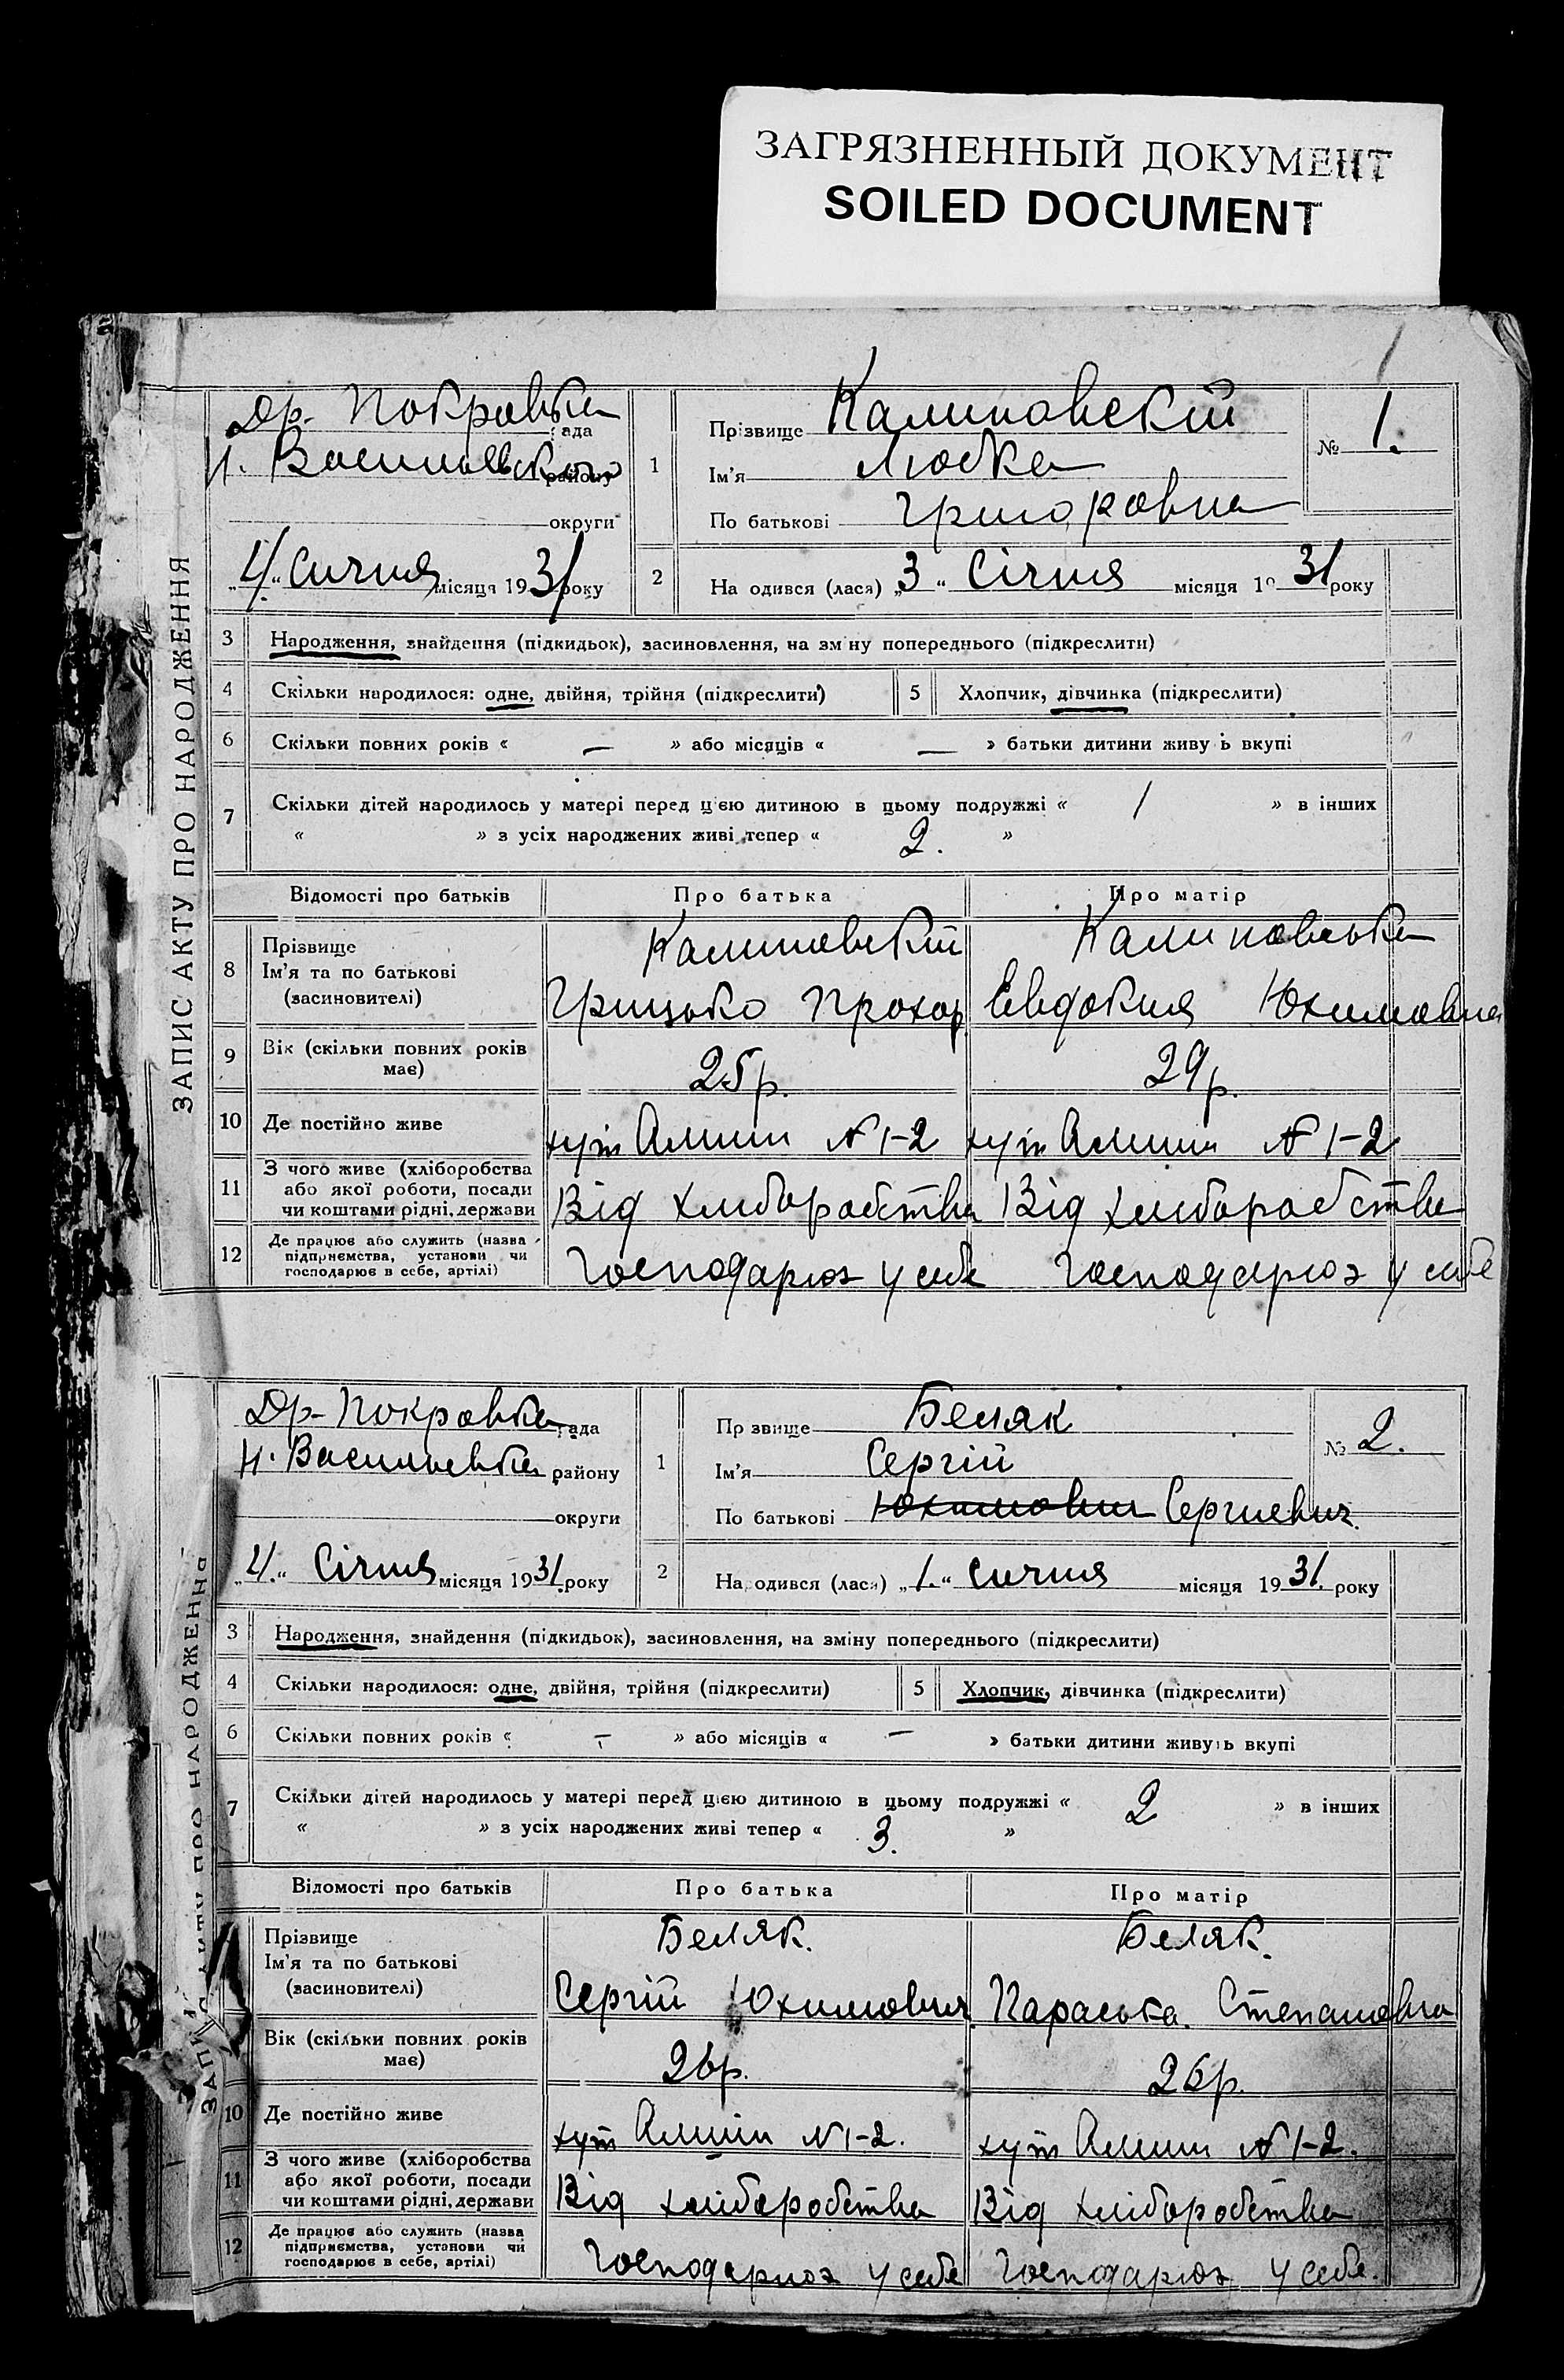 ЗАГРЯЗНЕННЫЙ ДОКУМЕНТ
SOILED DOCUMENT
ЗАПИС АКТУ ПРО НАРОДЖЕННЯ
Др-Покровка рада
Н. Васильевского району
округи
„4“ Сичня місяця 1931 року
1 Прізвище Калиновскій
Ім'я Любка
По батькові Григоровна
№ 1.
2 На одився (лася) „3“ Січня місяця 19 31 року
3 Народження, знайдення (підкидьок), засиновлення, на зм ну попереднього (підкреслити)
4 Скільки народилося: одне, двійня, трійня (підкреслити) 5 Хлопчик, дівчинка (підкреслити)
6 Скільки повних років « — » або місяців « — » батьки дитини живу ь вкупі
7 Скільки дітей народилось у матері перед цією дитиною в цьому подружжі « 1 » в інших
« » з усіх народжених живі тепер « 2. »
Відомості про батьків Про батька Про матір
8 Прізвище Калиновский Калиновська
Ім'я та по батькові
(засиновителі) Грицько Прохор Евдокия Юхимовна
9 Вік (скільки повних років має) 25р. 29р.
10 Де постійно живе хут Алини N 1-2 хут Алини N 1-2
11 З чого живе (хліборобства
або якої роботи, посади
чи коштами рідні, держави Від хлиборобства Від хлиборобства
12 Де працює або служить (назва
підприємства, установи чи
господарює в себе, артілі) Господарюэ у себе Господарюэ у себе
ЗАПИС АКТУ ПРО НАРОДЖЕННЯ
Др-Покровка рада
Н. Васильевка району
округи
„4.“ Січня місяця 1931. року
1 Пр звище Беляк
Ім'я Сергій
По батькові Юхимович Сергиевич.
№ 2.
2 Народився (лася) „1.“ Сичня місяця 19 31. року
3 Народження, знайдення (підкидьок), засиновлення, на зміну попереднього (підкреслити)
4 Скільки народилося: одне, двійня, трійня (підкреслити) 5 Хлопчик, дівчинка (підкреслити)
6 Скільки повних років « — » або місяців « — » батьки дитини живуть вкупі
7 Скільки дітей народилось у матері перед цією дитиною в цьому подружжі « 2 » в інших
« » з усіх народжених живі тепер « 3. »
Відомості про батьків Про батька Про матір
Прізвище Беляк. Беляк.
Ім'я та по батькові
(засиновителі) Сергій Юхимович Параська. Степановна
Вік (скільки повних років має) 26р. 26р.
10 Де постійно живе хут Алини N 1-2. хут Алини N 1-2.
11 З чого живе (хліборобства
або якої роботи, посади
чи коштами рідні, держави Від хліборобства Від хліборобства
12 Де працює або служить (назва
підприємства, установи чи
господарює в себе, артілі) Господарюэ у себе Господарюэ у себе.